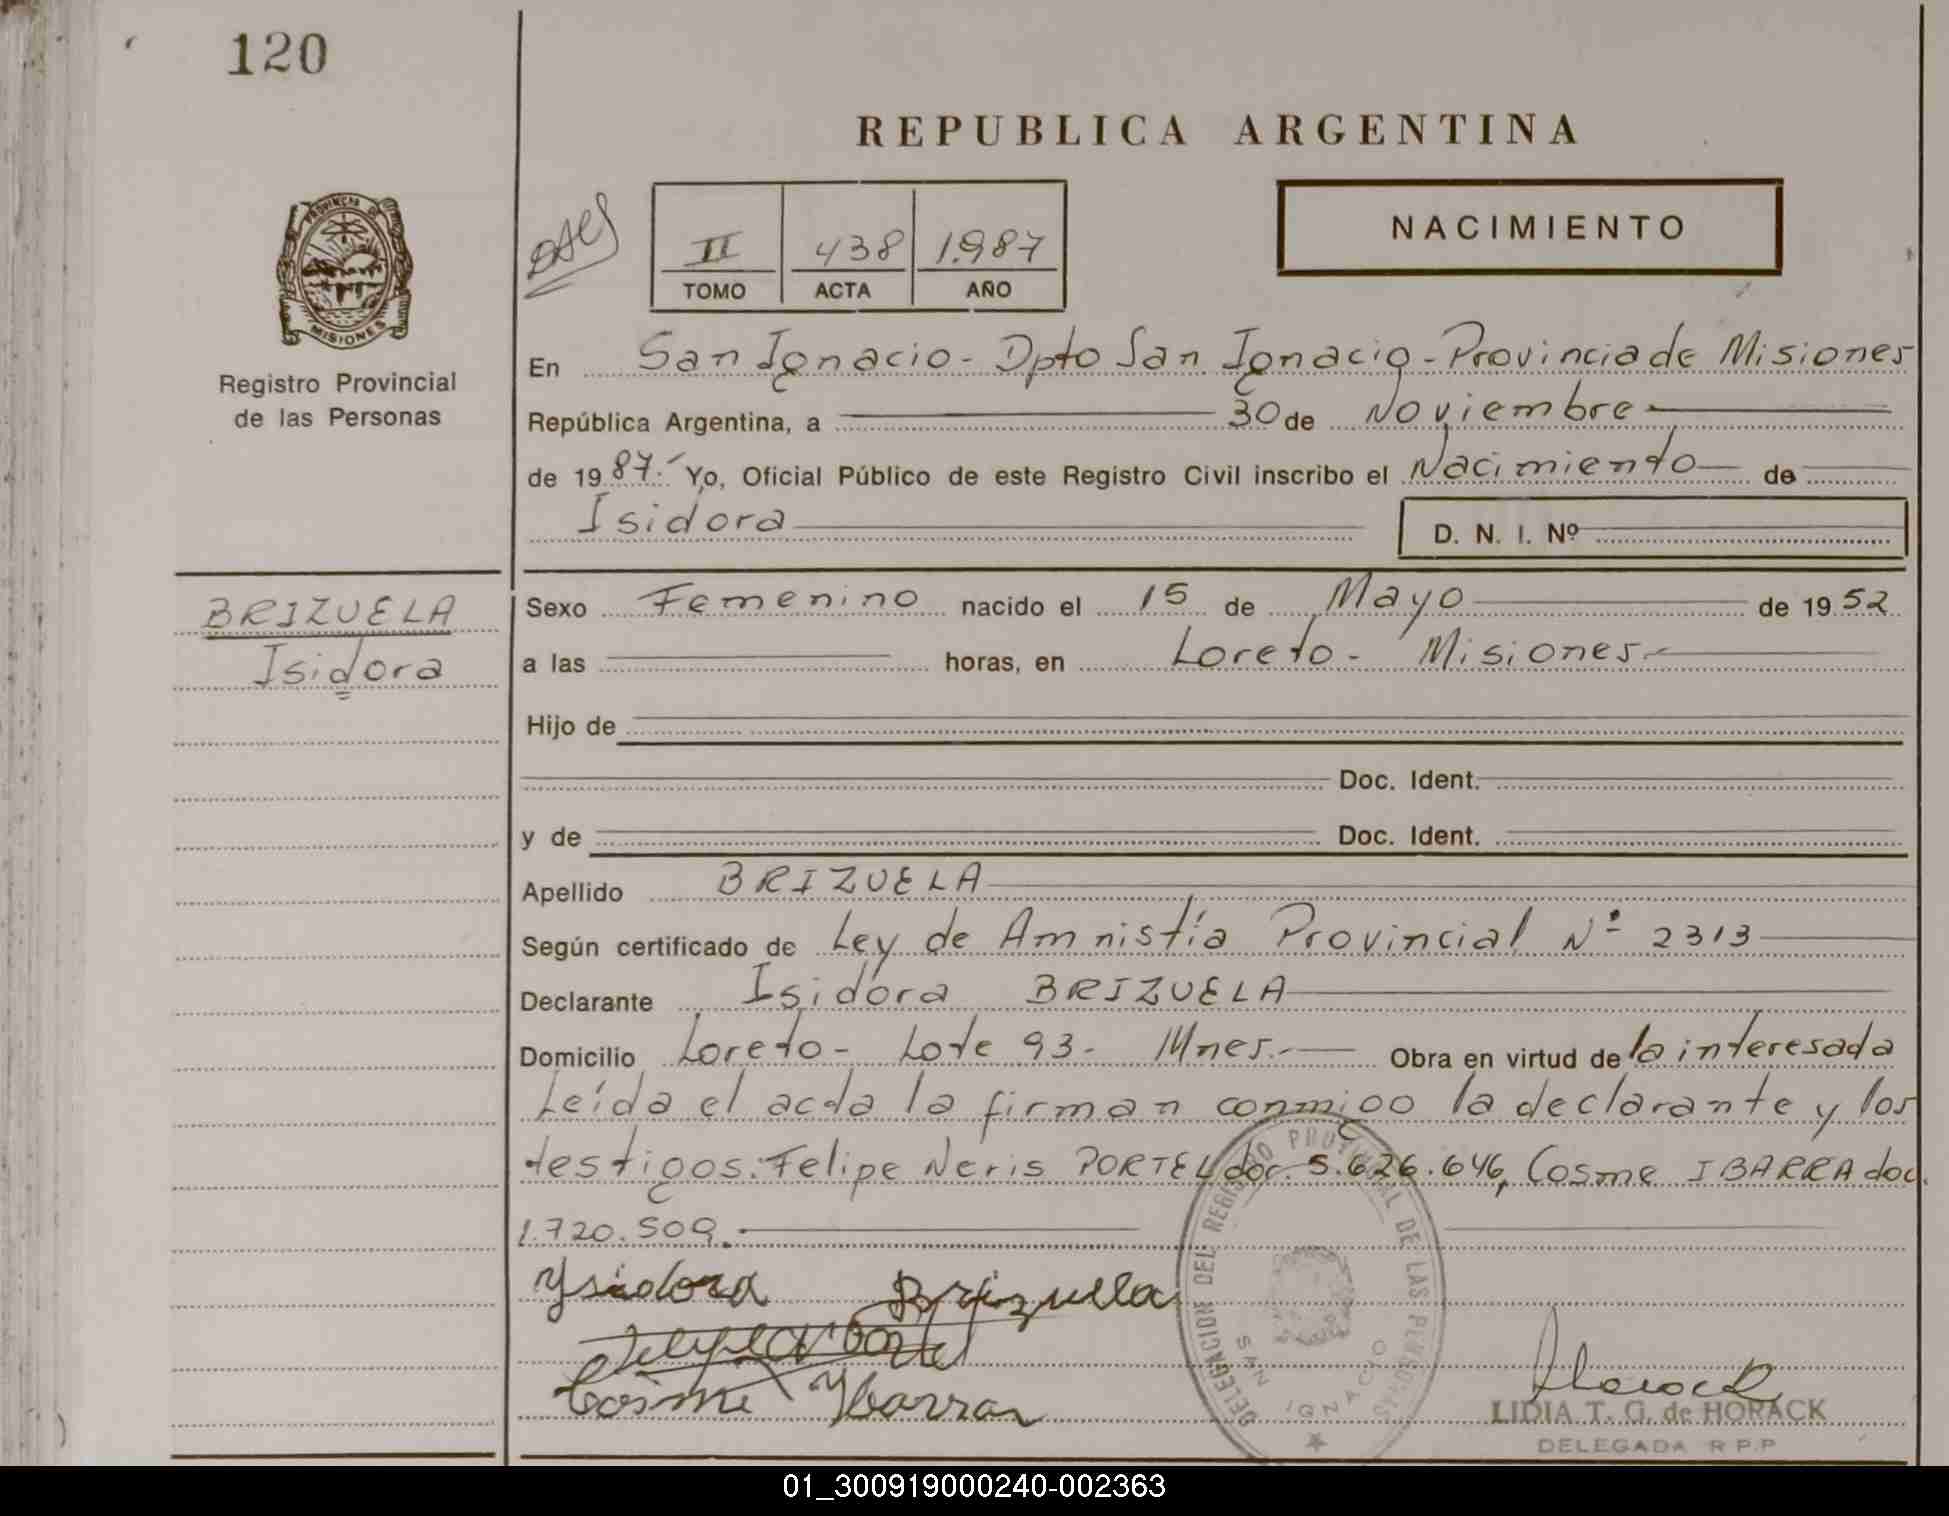 120
REPUBLICA ARGENTINA
NACIMIENTO
II 438 1.987
TOMO ACTA AÑO
PROVINCIA DE
MISIONES
Registro Provincial
de las Personas
En San Ignacio - Dpto San Ignacio - Provincia de Misiones
República Argentina, a 30 de Noviembre
de 1987. Yo, Oficial Público de este Registro Civil inscribo el Nacimiento de
Isidora
D. N. I. Nº
BRIZUELA
Isidora
Sexo Femenino nacido el 15 de Mayo de 1952
a las horas, en Loreto - Misiones
Hijo de
Doc. Ident.
y de Doc. Ident.
Apellido BRIZUELA
Según certificado de Ley de Amnistía Provincial Nº 2313
Declarante Isidora BRIZUELA
Domicilio Loreto - Lote 93 - Mnes. Obra en virtud de la interesada
Leída el acta la firman conmigo la declarante y los
testigos: Felipe Neris PORTEL doc. 5.626.646, Cosme IBARRA doc.
1.720.509.
Ysidora Brizuela
Cosme Ybarra
DELEGACION DEL REGISTRO PROVINCIAL DE LAS PERSONAS
SAN IGNACIO
LIDIA T. G. de HORACK
DELEGADA R.P.P
01_300919000240-002363